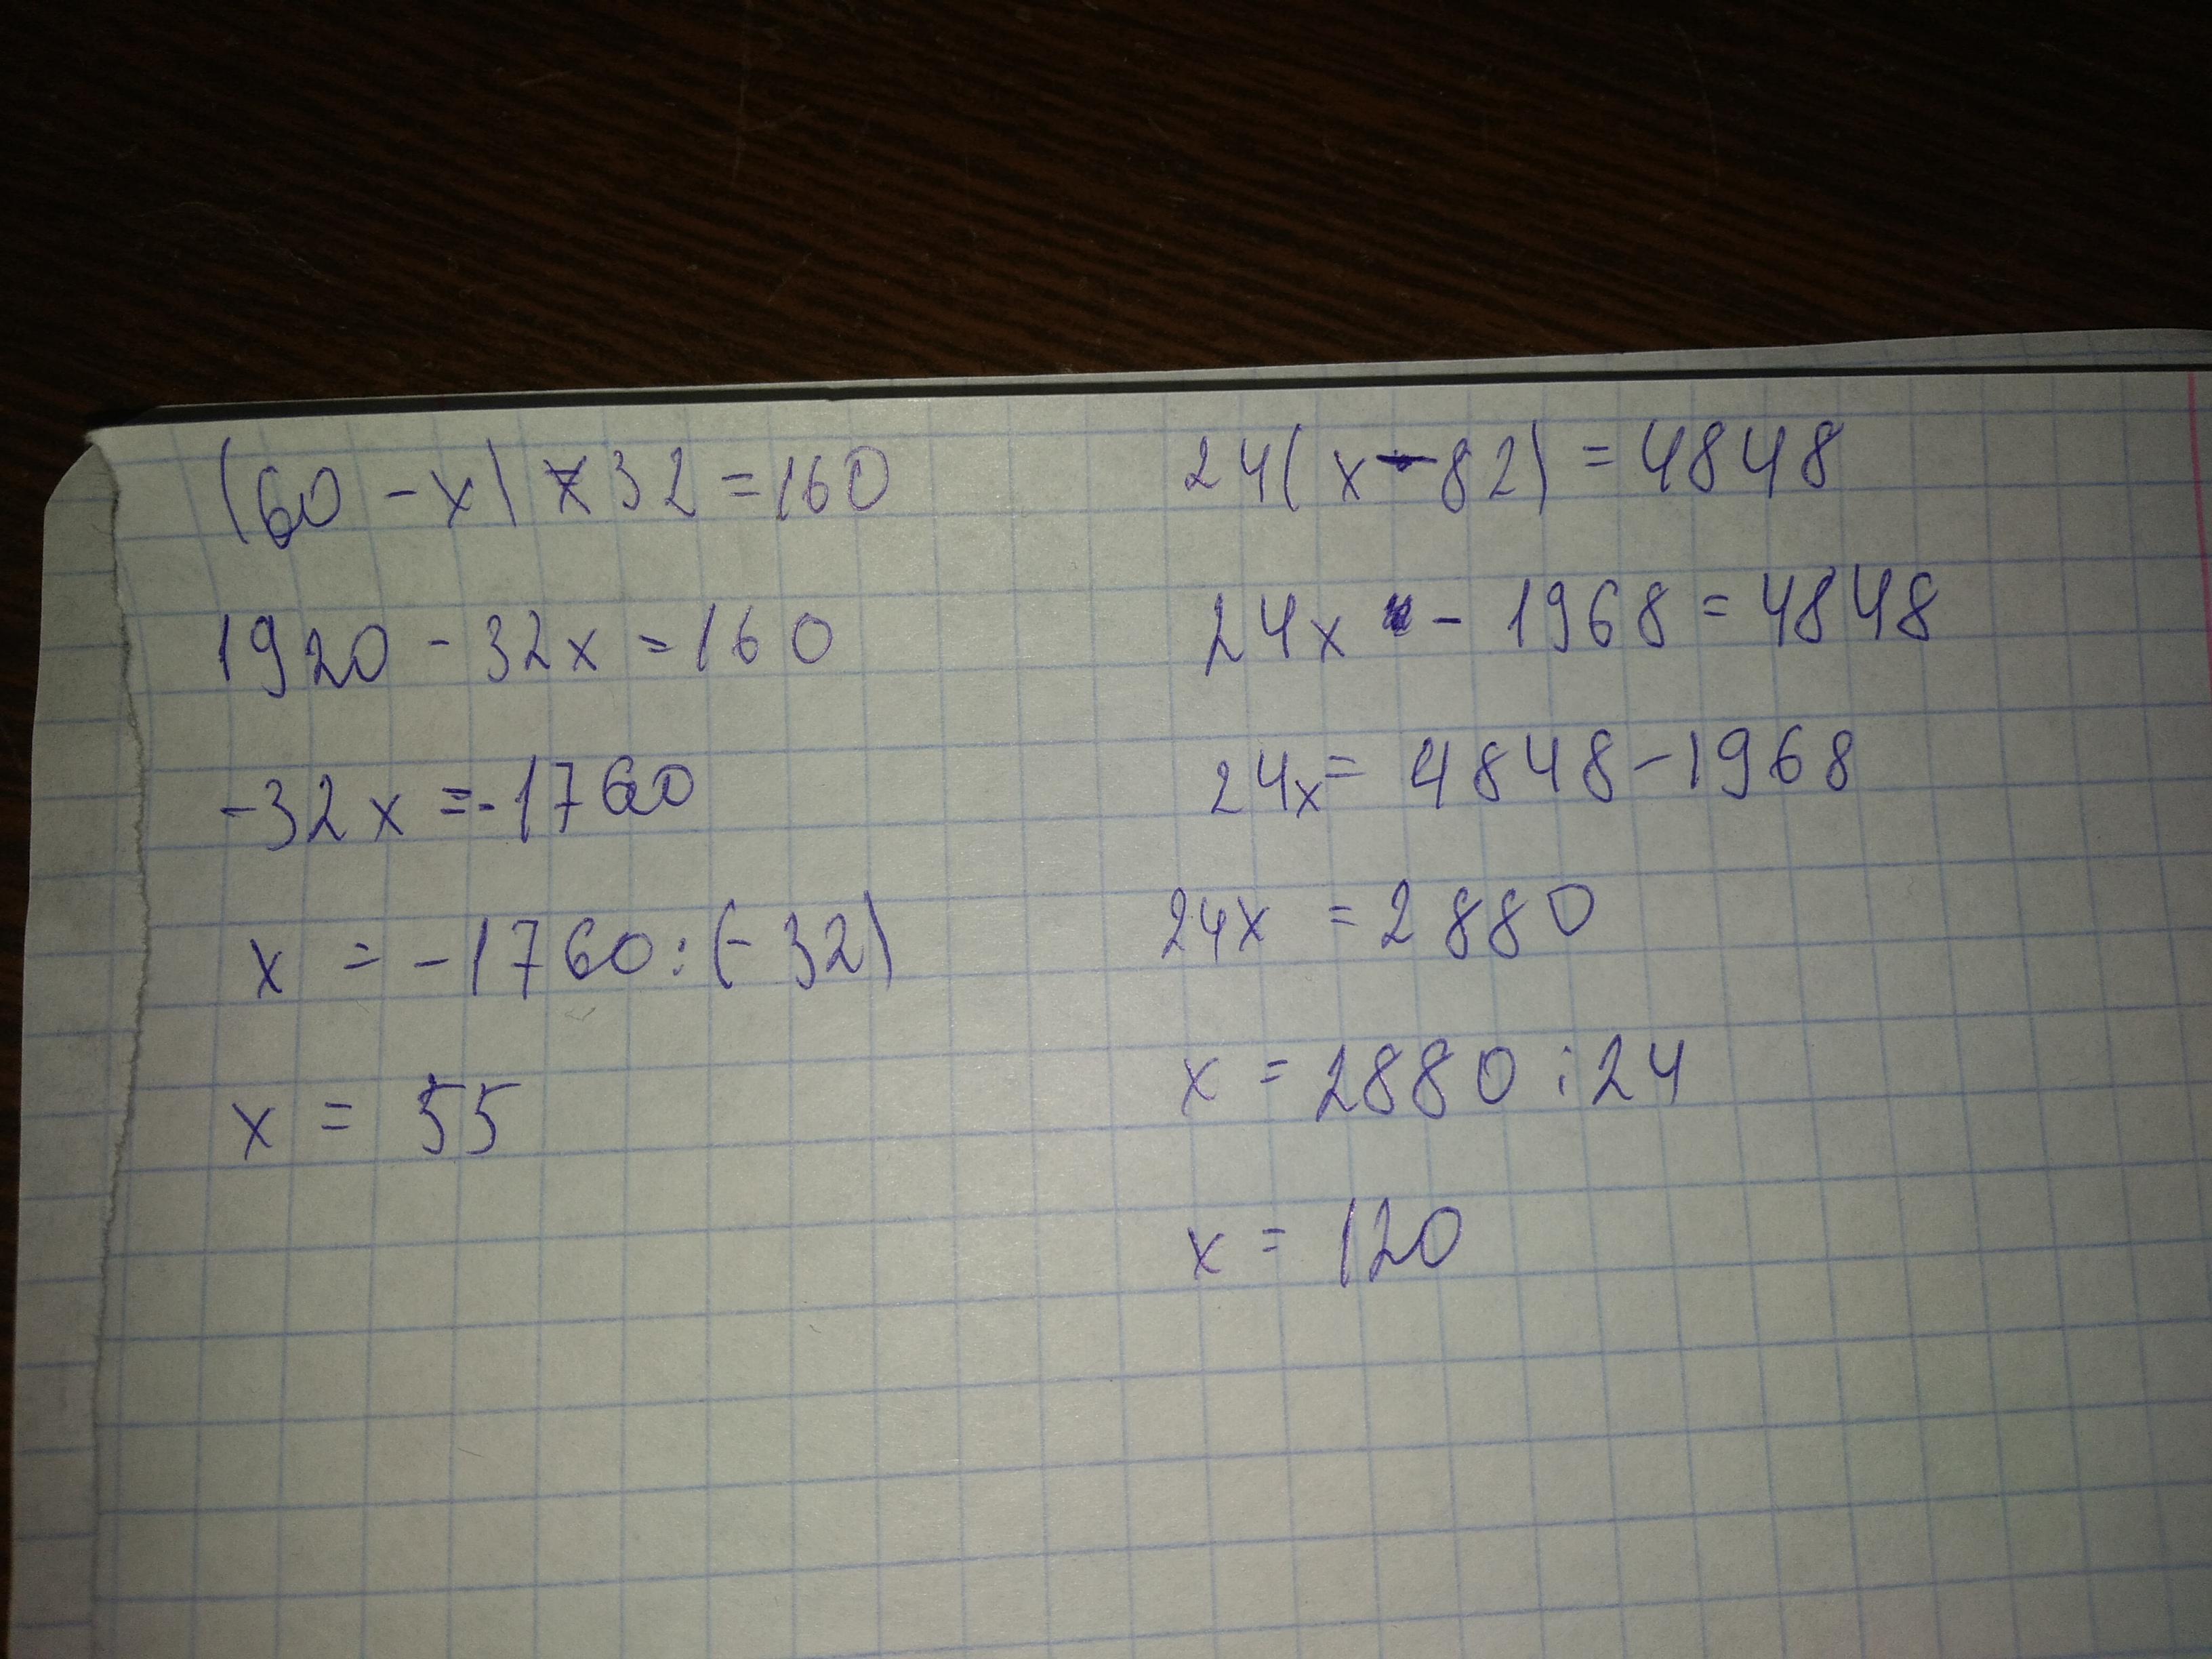 (60 - x) × 32 = 160
1920 - 32x = 160
-32x = -1760
x = -1760 : (-32)
x = 55
24(x - 82) = 4848
24x - 1968 = 4848
24x = 4848 - 1968
24x = 2880
x = 2880 : 24
x = 120